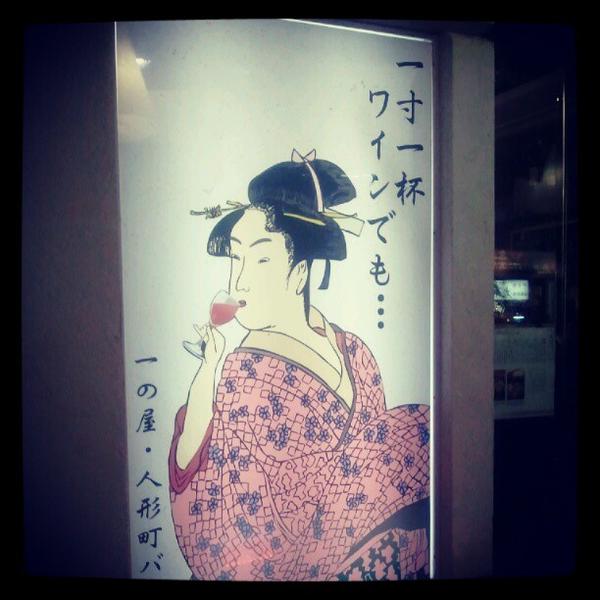 一寸一杯
ワインでも…
一の屋・人形町バ